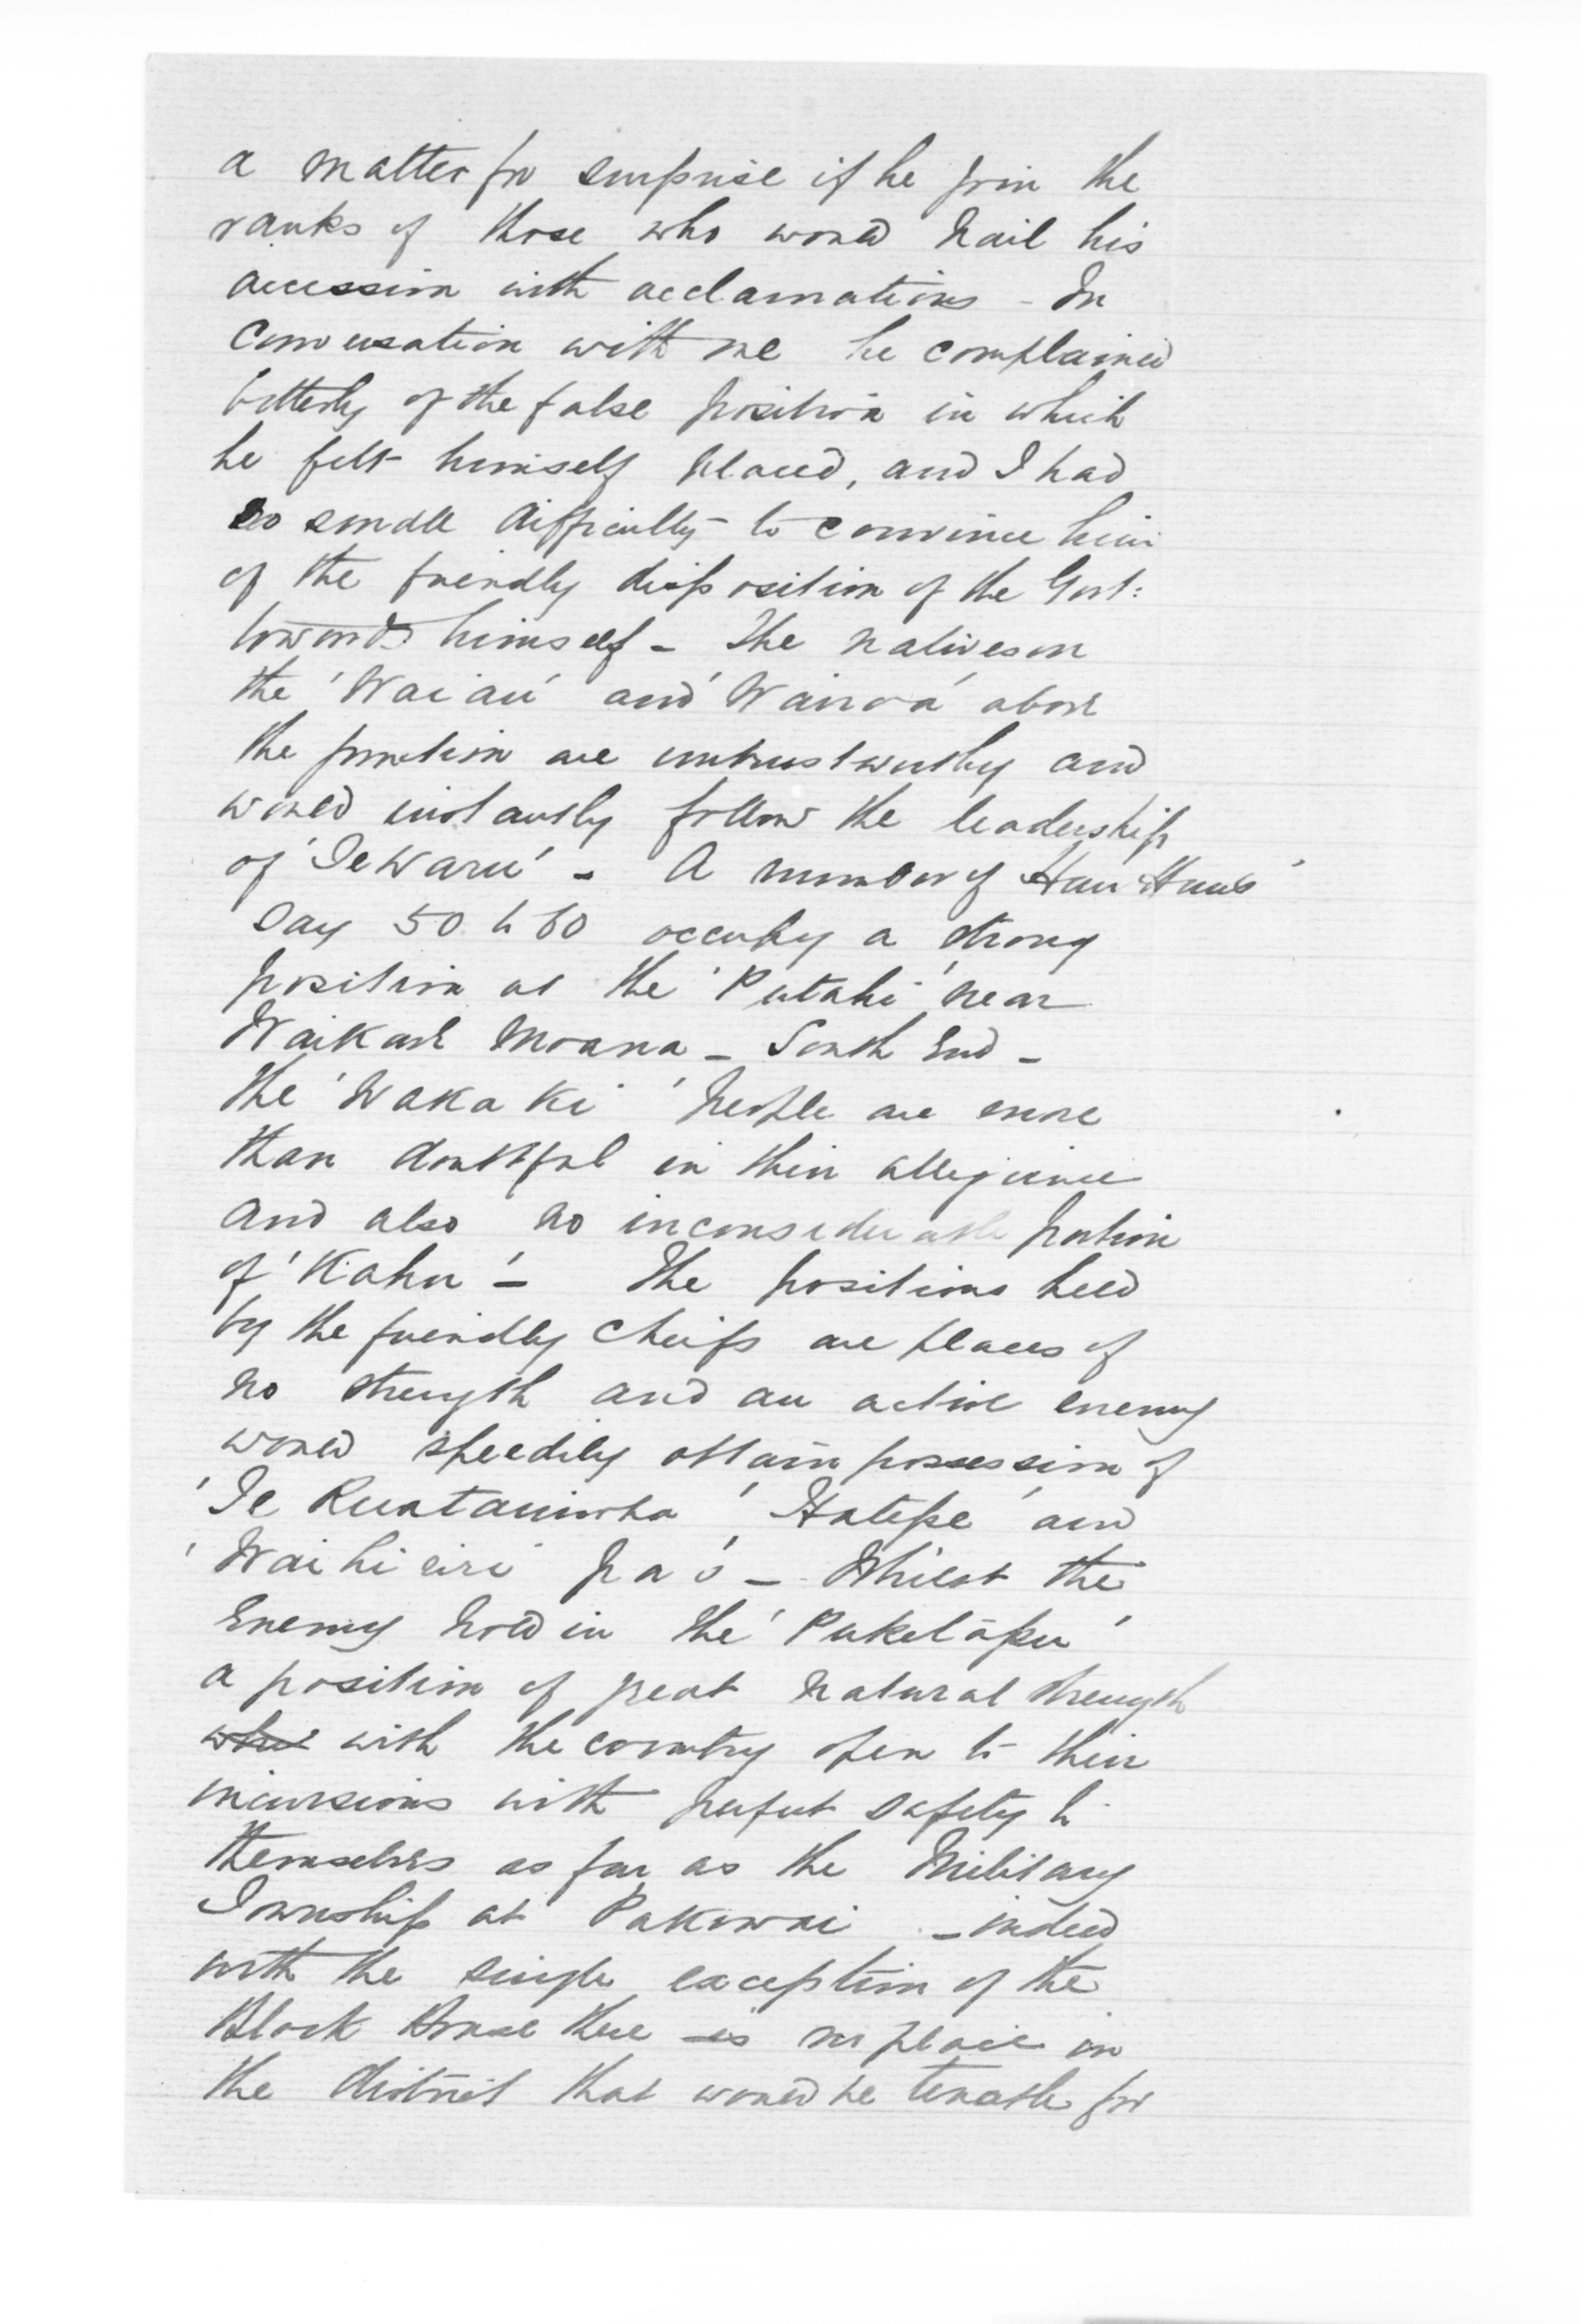 a matter for surprise if he join the
ranks of those who would hail his
accession with acclamations - In
conversation with me he complained
bitterly of the false position in which
he felt himself placed, and I had
no small difficulty to convince him
of the friendly disposition of the Govt:
towards himself - The natives on
the 'Waiau' and 'Wairoa' above
the junction are untrustworthy and
would instantly follow the leadership
of 'Te Waru' - A number of 'Hau Haus'
say 50 to 60 occupy a strong
position at the 'Putahi' near
Waikare Moana - South End -
The 'Wakaki' people are more
than doubtful in their allegiance
and also no inconsiderable portion
of 'Kahu' - The positions held
by the friendly Cheifs are places of
no strength and an active enemy
would speedily obtain possession of
'Te Ruataniwha' 'Hatepe' and
'Waihirere' Pa's - Whilst the
Enemy hold in the 'Puketapu'
a position of great natural strength
with the country open to their
incursions with perfect safety to
themselves as far as the Military
Township at Pakowai - indeed
with the single exception of the
Block House there is no place in
the district that would be tenable for